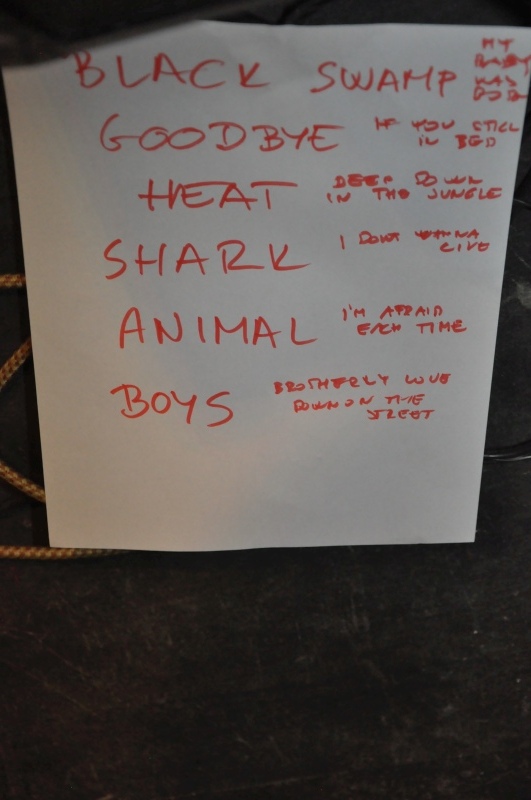 BLACK SWAMP
MY
BABY
WAS
GOODBYE
IF YOU STILL
IN BED
HEAT
DEEP DOWN
IN THE JUNGLE
SHARK
I DONT WANNA
LIVE
ANIMAL
I'M AFRAID
EACH TIME
BOYS
BROTHERLY LOVE
DOWN ON THE
STREET